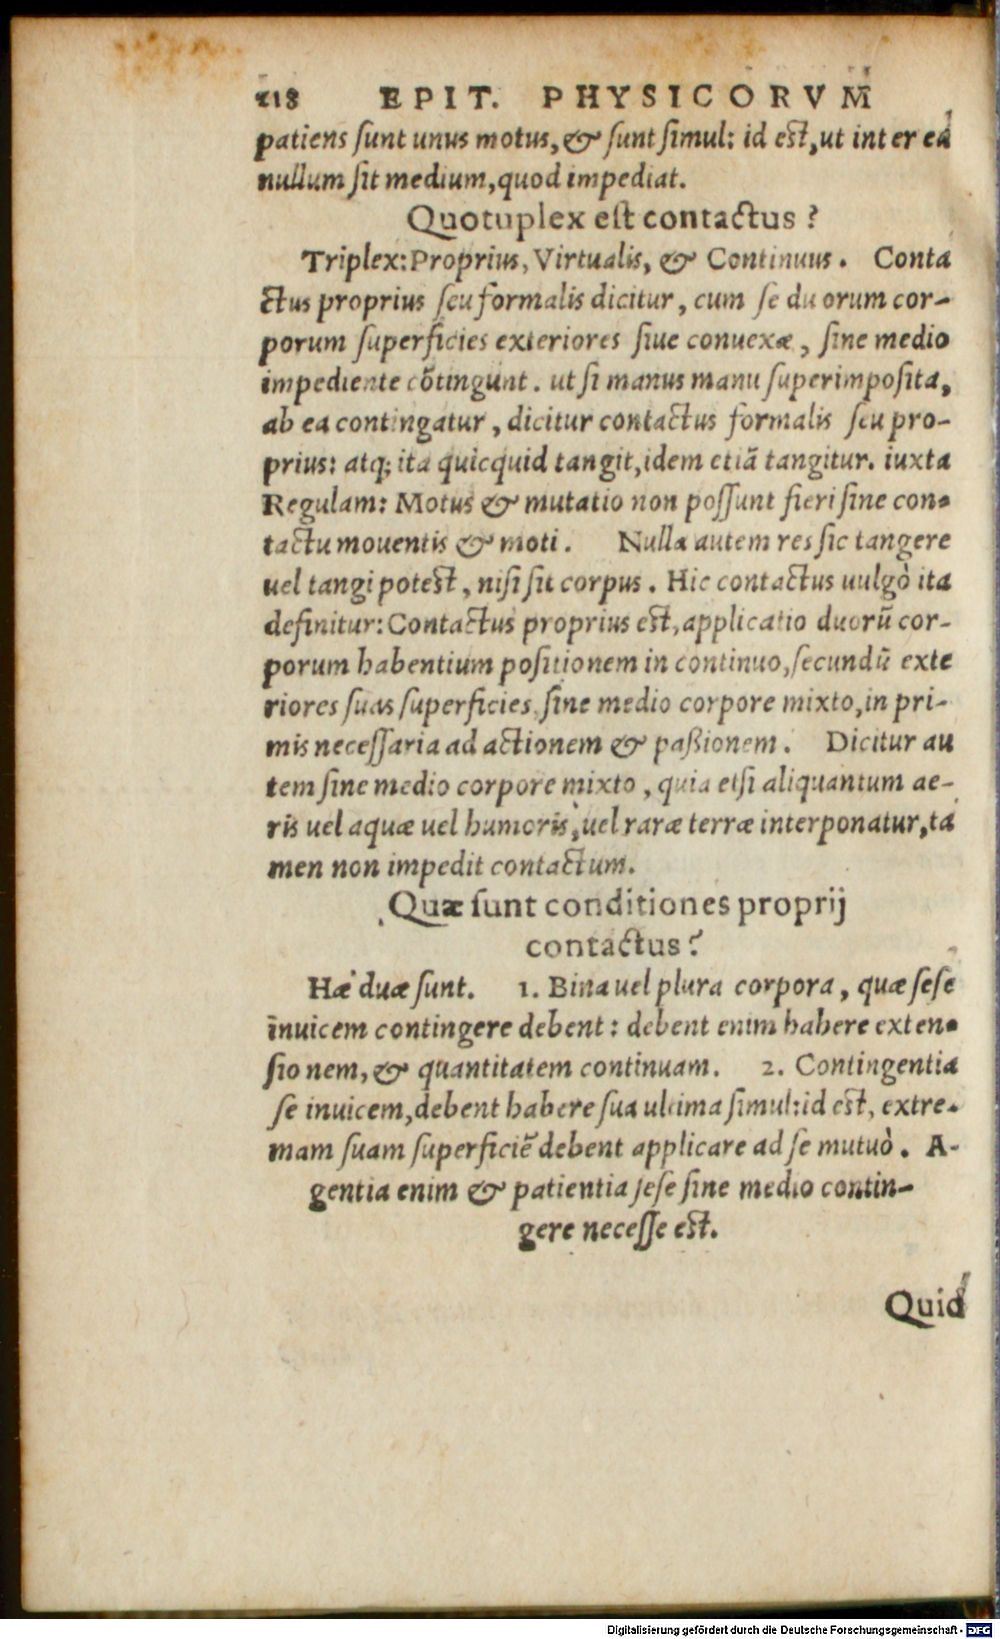 218 EPIT. PHYSICORVM
patiens sunt unus motus, & sunt simul: id est, ut inter ea
nullum sit medium, quod impediat.
Quotuplex est contactus?
Triplex: Proprius, Virtualis, & Continuus. Conta
ctus proprius seu formalis dicitur, cum se duorum cor-
porum superficies exteriores siue conuexæ, sine medio
impediente cõtingunt. ut si manus manu superimposita,
ab ea contingatur, dicitur contactus formalis seu pro-
prius: atq; ita quicquid tangit, idem etiã tangitur. iuxta
Regulam: Motus & mutatio non possunt fieri sine con-
tactu mouentis & moti. Nulla autem res sic tangere
uel tangi potest, nisi sit corpus. Hic contactus uulgò ita
definitur: Contactus proprius est, applicatio duorũ cor-
porum habentium positionem in continuo, secundũ exte
riores suas superficies, sine medio corpore mixto, in pri-
mis necessaria ad actionem & paßionem. Dicitur au
tem sine medio corpore mixto, quia etsi aliquantum ae-
ris uel aquæ uel humoris, uel raræ terræ interponatur, ta
men non impedit contactum.
Quæ sunt conditiones proprij
contactus?
Hæ duæ sunt. 1. Bina uel plura corpora, quæ sese
inuicem contingere debent: debent enim habere exten-
sionem, & quantitatem continuam. 2. Contingentia
se inuicem, debent habere sua ultima simul: id est, extre-
mam suam superficiẽ debent applicare ad se mutuò. A-
gentia enim & patientia sese sine medio contin-
gere necesse est.
Quid
Digitalisierung gefördert durch die Deutsche Forschungsgemeinschaft - DFG